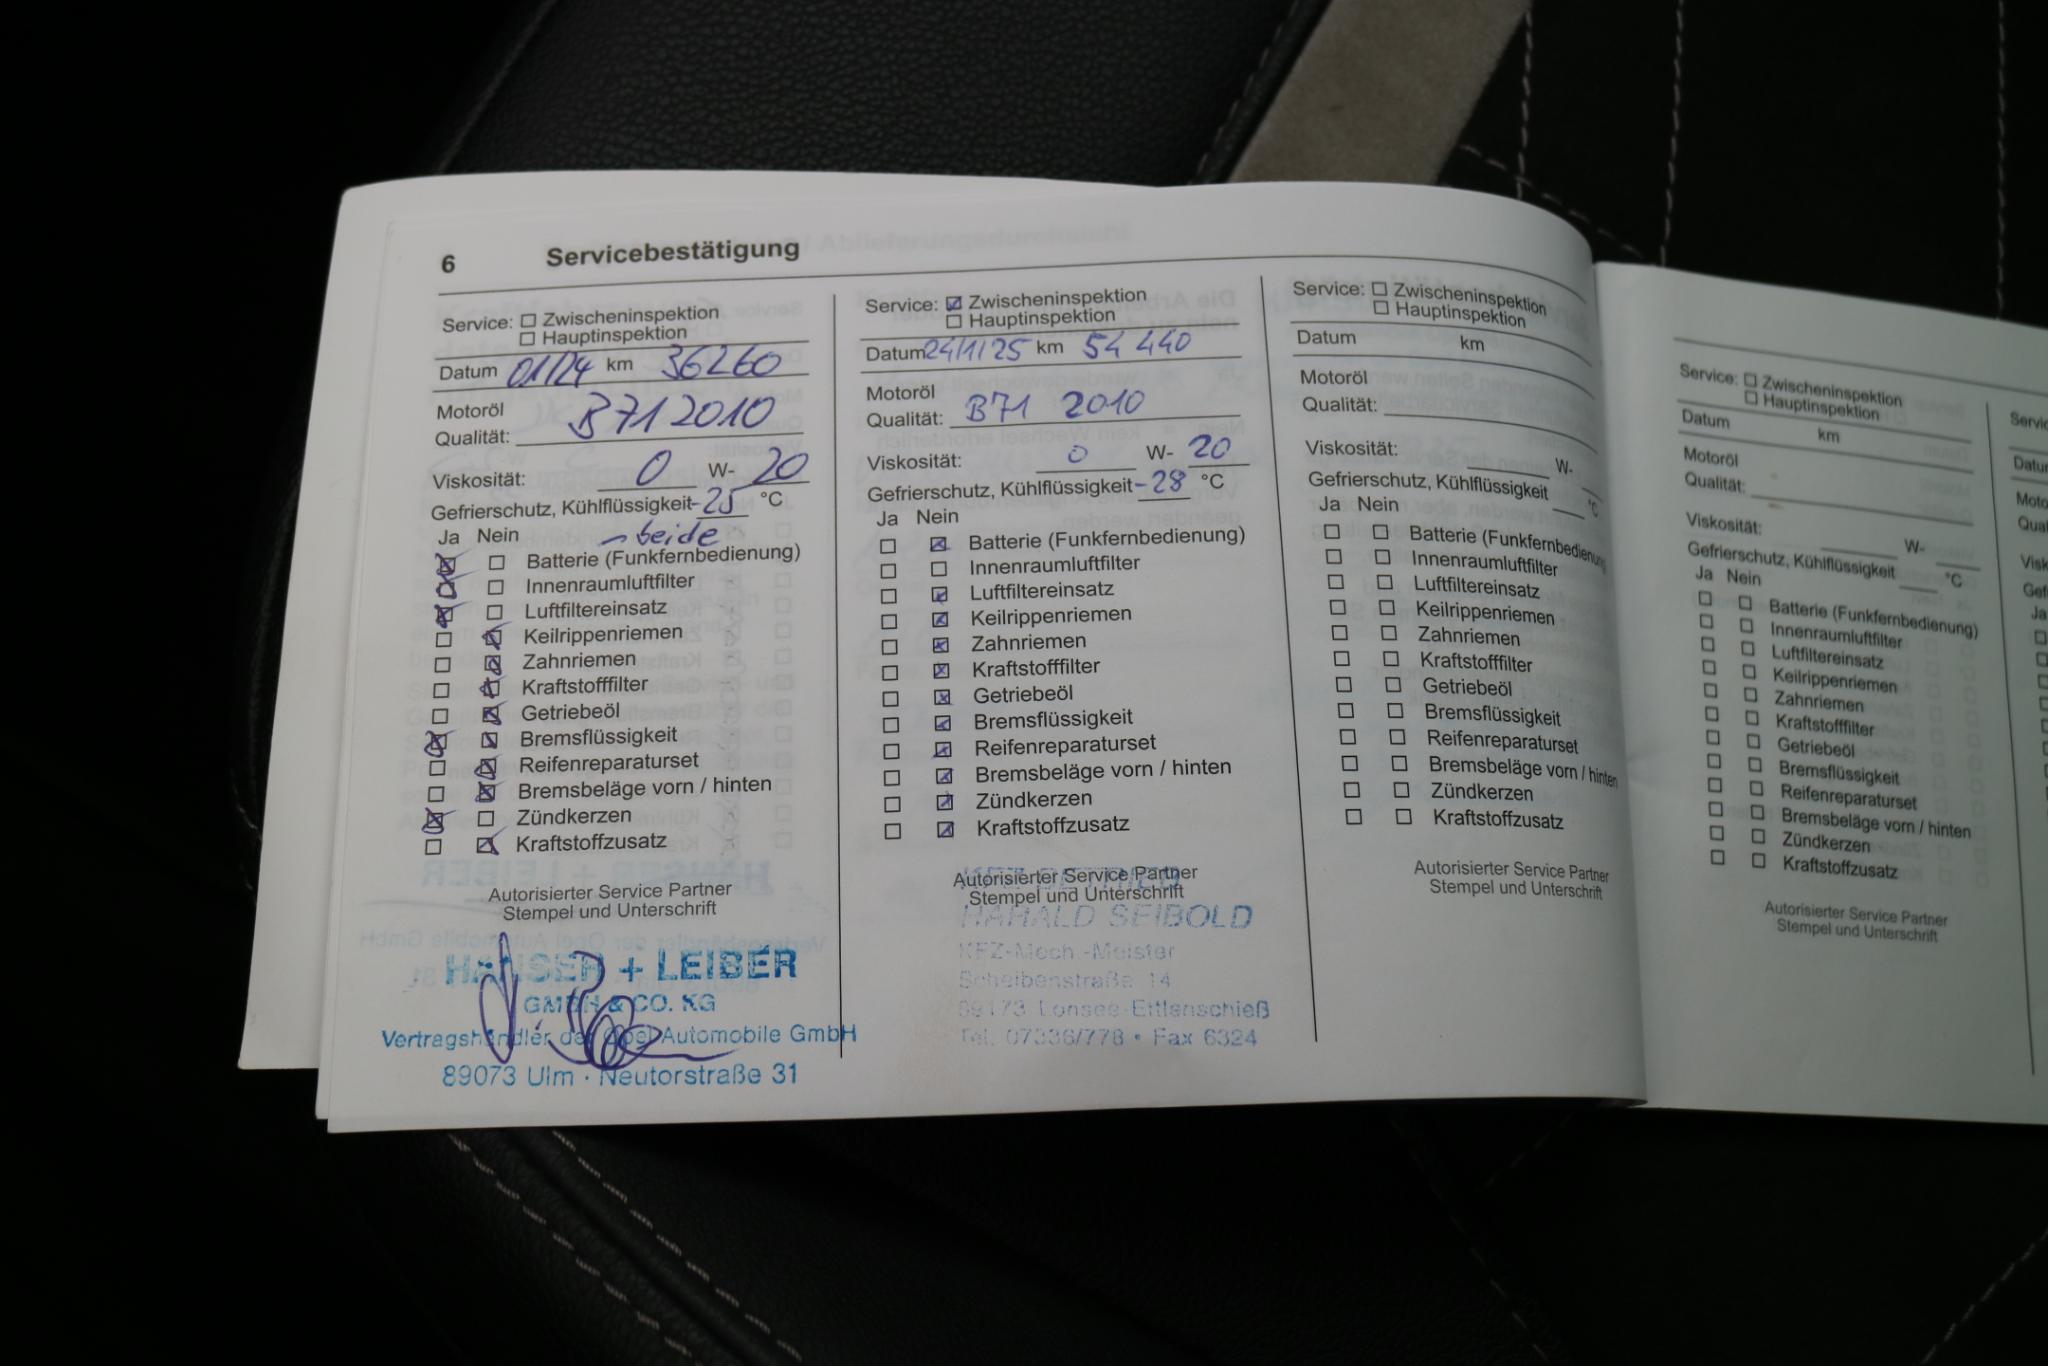 6 Servicebestätigung
Service: ☐ Zwischeninspektion
☐ Hauptinspektion
Datum 01/24 km 36260
Motoröl
Qualität: B71 2010
Viskosität: 0 W- 20
Gefrierschutz, Kühlflüssigkeit -25 °C
Ja Nein - beide
☒ ☐ Batterie (Funkfernbedienung)
☒ ☐ Innenraumluftfilter
☒ ☐ Luftfiltereinsatz
☐ ☒ Keilrippenriemen
☐ ☒ Zahnriemen
☐ ☒ Kraftstofffilter
☐ ☒ Getriebeöl
☒ ☒ Bremsflüssigkeit
☐ ☒ Reifenreparaturset
☐ ☒ Bremsbeläge vorn / hinten
☒ ☐ Zündkerzen
☐ ☒ Kraftstoffzusatz
Autorisierter Service Partner
Stempel und Unterschrift
+ LEIBER
GMBH & CO. KG
Vertragshändler der Opel Automobile GmbH
89073 Ulm · Neutorstraße 31
Service: ☒ Zwischeninspektion
☐ Hauptinspektion
Datum 24/1/25 km 54 440
Motoröl
Qualität: B71 2010
Viskosität: 0 W- 20
Gefrierschutz, Kühlflüssigkeit -28 °C
Ja Nein
☐ ☒ Batterie (Funkfernbedienung)
☐ ☐ Innenraumluftfilter
☐ ☒ Luftfiltereinsatz
☐ ☒ Keilrippenriemen
☐ ☒ Zahnriemen
☐ ☒ Kraftstofffilter
☐ ☒ Getriebeöl
☐ ☒ Bremsflüssigkeit
☐ ☒ Reifenreparaturset
☐ ☒ Bremsbeläge vorn / hinten
☐ ☒ Zündkerzen
☐ ☒ Kraftstoffzusatz
Autorisierter Service Partner
Stempel und Unterschrift
KFZ-BETRIEB
HARALD SEIBOLD
KFZ-Mech.-Meister
Scheibenstraße 14
89173 Lonsee-Ettlenschieß
Tel. 07336/778 • Fax 6324
Service: ☐ Zwischeninspektion
☐ Hauptinspektion
Datum km
Motoröl
Qualität:
Viskosität: W-
Gefrierschutz, Kühlflüssigkeit °C
Ja Nein
☐ ☐ Batterie (Funkfernbedienung)
☐ ☐ Innenraumluftfilter
☐ ☐ Luftfiltereinsatz
☐ ☐ Keilrippenriemen
☐ ☐ Zahnriemen
☐ ☐ Kraftstofffilter
☐ ☐ Getriebeöl
☐ ☐ Bremsflüssigkeit
☐ ☐ Reifenreparaturset
☐ ☐ Bremsbeläge vorn / hinten
☐ ☐ Zündkerzen
☐ ☐ Kraftstoffzusatz
Autorisierter Service Partner
Stempel und Unterschrift
Service: ☐ Zwischeninspektion
☐ Hauptinspektion
Datum km
Motoröl
Qualität:
Viskosität: W-
Gefrierschutz, Kühlflüssigkeit °C
Ja Nein
☐ ☐ Batterie (Funkfernbedienung)
☐ ☐ Innenraumluftfilter
☐ ☐ Luftfiltereinsatz
☐ ☐ Keilrippenriemen
☐ ☐ Zahnriemen
☐ ☐ Kraftstofffilter
☐ ☐ Getriebeöl
☐ ☐ Bremsflüssigkeit
☐ ☐ Reifenreparaturset
☐ ☐ Bremsbeläge vorn / hinten
☐ ☐ Zündkerzen
☐ ☐ Kraftstoffzusatz
Autorisierter Service Partner
Stempel und Unterschrift